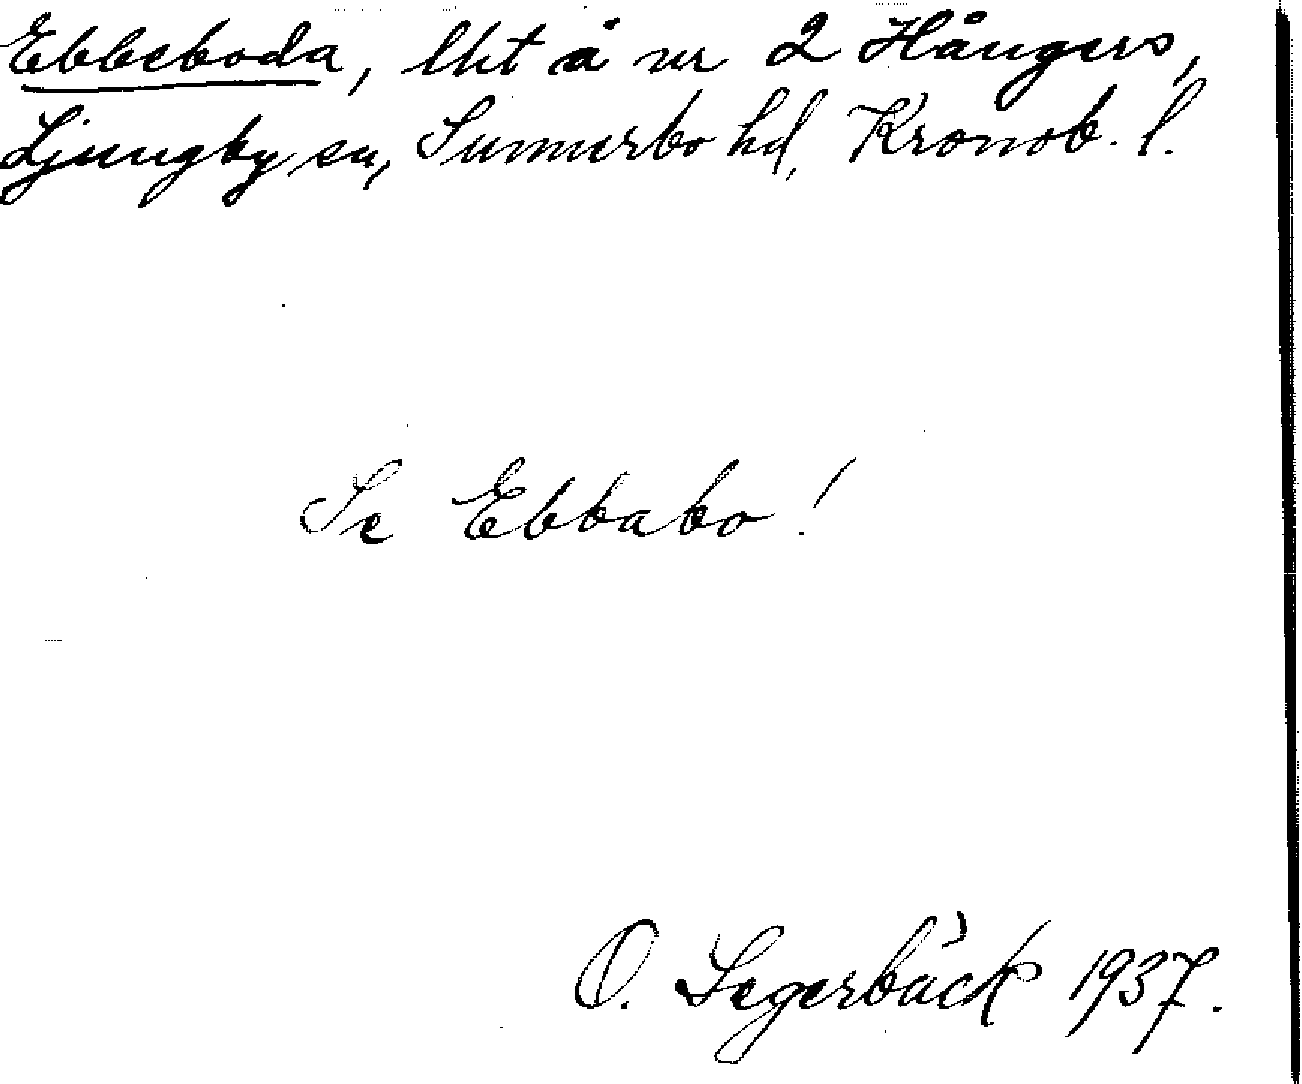 Ebbeboda, lht å nr 2 Hångers,
Ljungby sn, Sunnerbo hd, Kronob. l.
Se Ebbabo!
O. Segerbäck 1937.